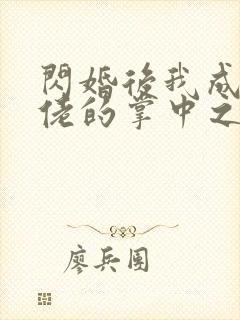 閃婚後我成
佬的掌中之
廖兵團